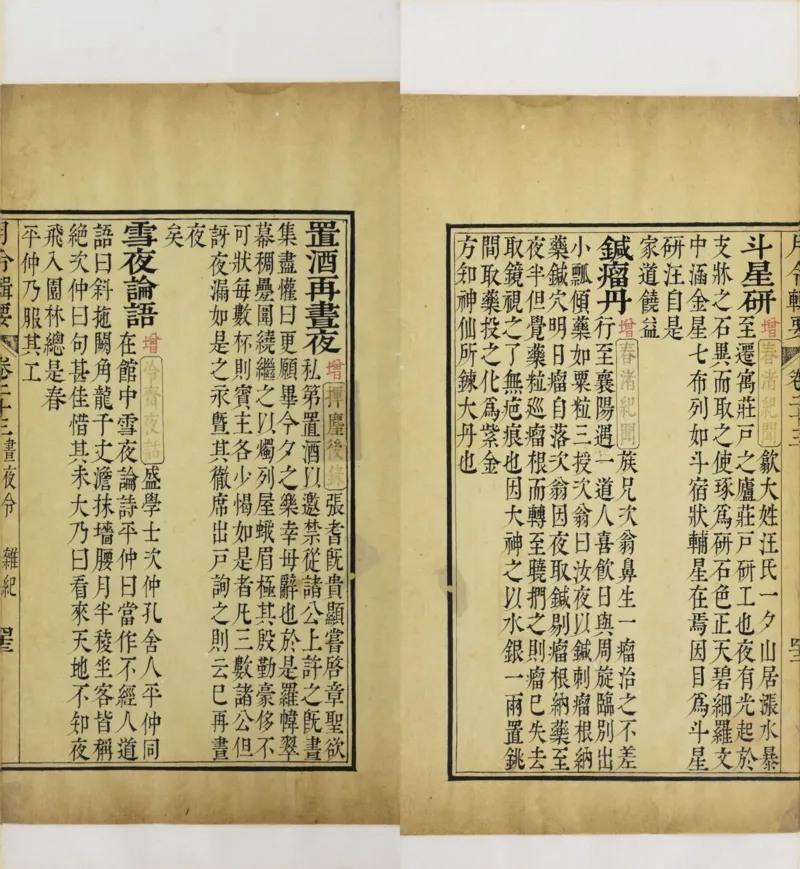 月令輯要 卷二十三
斗星研 增 春渚紀聞 歙大姓汪氏一夕山居漲水暴
至遷寓莊戸之廬莊戸研工也夜有光起於
支牀之石異而取之使琢爲研石色正天碧細羅文
中涵金星七布列如斗宿狀輔星在焉因目爲斗星
研汪自是
家道饒益
鍼瘤丹 增 春渚紀聞 族兄次翁鼻生一瘤治之不差
行至襄陽遇一道人喜飲日與周旋臨別出
小瓢傾藥如粟粒三授次翁曰汝夜以鍼刺瘤根納
藥鍼穴明日瘤自落次翁因夜取鍼剔瘤根納藥至
夜半但覺藥粒巡瘤根而轉至曉捫之則瘤已失去
取鏡視之了無疤痕也因大神之以水銀一兩置銚
間取藥投之化爲紫金
方知神仙所鍊大丹也
置酒再晝夜 增 揮麈後錄 張耆旣貴顯嘗啓章聖欲
私第置酒以邀禁從諸公上許之旣晝
集盡懽曰更願畢今夕之樂幸毋辭也於是羅幃翠
幕稠疊圍繞繼之以燭列屋蛾眉極其殷勤豪侈不
可狀每數杯則賓主各少愒如是者凡三數諸公但
訝夜漏如是之永曁其徹席出戸詢之則云已再晝
夜
矣
雪夜論語 增 冷齋夜話 盛學士次仲孔舍人平仲同
在館中雪夜論詩平仲曰當作不經人道
語曰斜拖闕角龍千丈澹抹墻腰月半稜坐客皆稱
絶次仲曰句甚佳惜其未大乃曰看來天地不知夜
飛入園林總是春
平仲乃服其工
月令輯要 卷二十三 晝夜令 雜紀